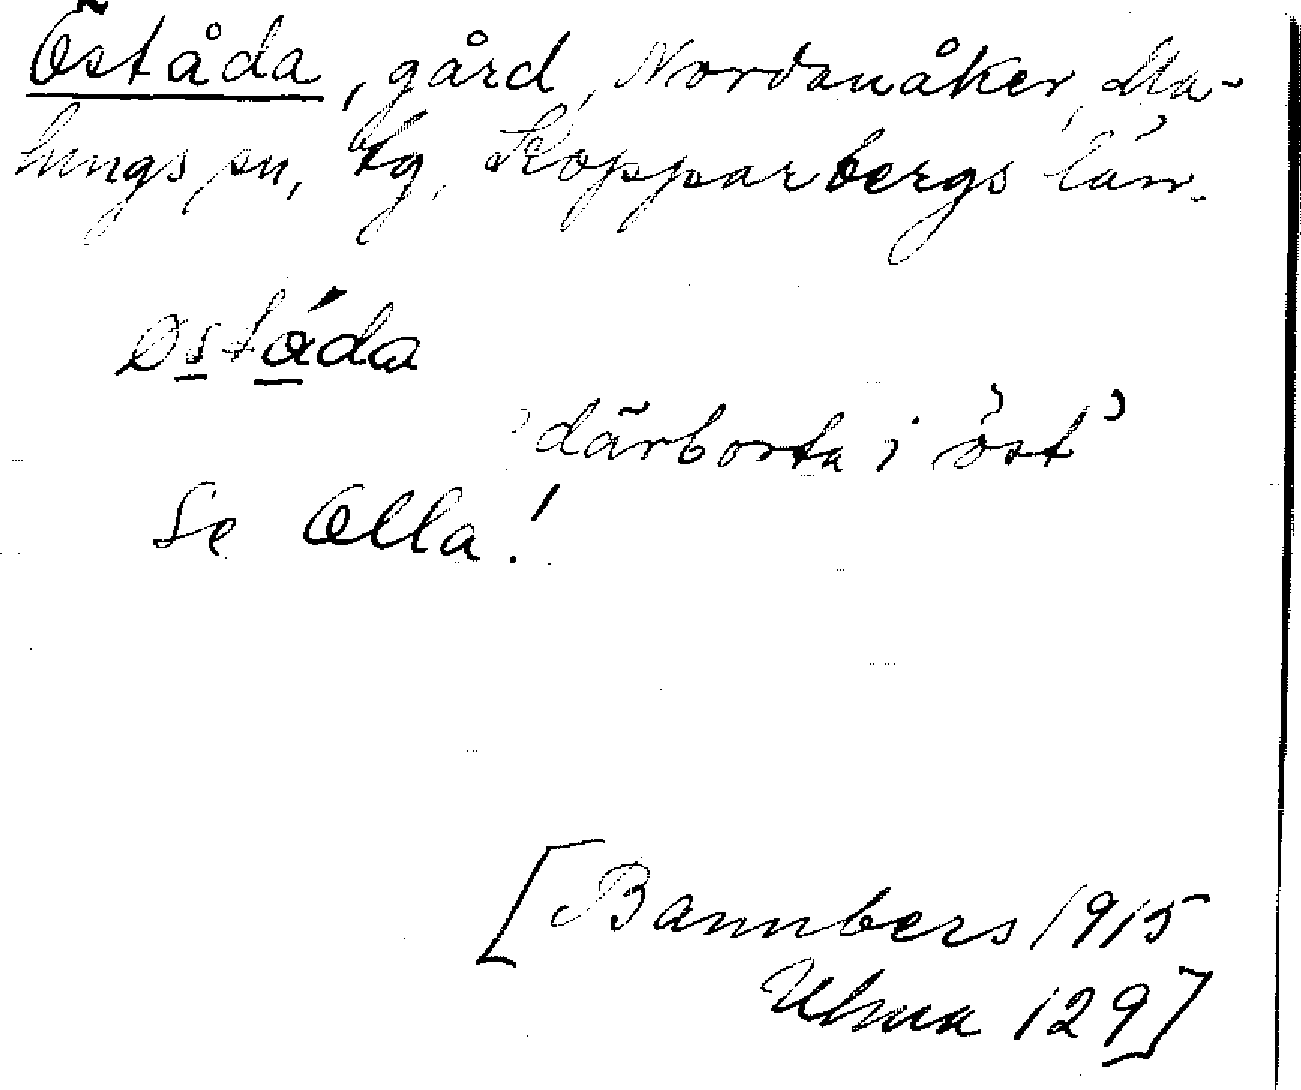 Öståda, gård, Nordanåker, Ma-
lungs sn, tg, Kopparbergs län.
Østáda
'därborta i öst'
Se Olla!
[Bannbers 1915
Ulma 129]